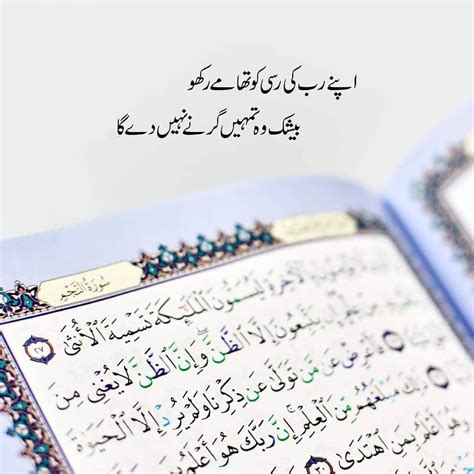 اپنے رب کی رسی کو تھامے رکھو
بیشک وہ تمہیں گرنے نہیں دے گا
سُورَةُ النَّجْمِ
الْآخِرَةِ لَيُسَمُّونَ الْمَلَٰٓئِكَةَ تَسْمِيَةَ الْأُنثَىٰ ٢٧
يَتَّبِعُونَ إِلَّا الظَّنَّ ۖ وَإِنَّ الظَّنَّ لَا يُغْنِي مِنَ
فَأَعْرِضْ عَن مَّن تَوَلَّىٰ عَن ذِكْرِنَا وَلَمْ يُرِدْ إِلَّا الْحَيَوٰةَ
ذَٰلِكَ مَبْلَغُهُم مِّنَ الْعِلْمِ ۚ إِنَّ رَبَّكَ هُوَ أَعْلَمُ
وَهُوَ أَعْلَمُ بِمَنِ اهْتَدَىٰ ٣٠